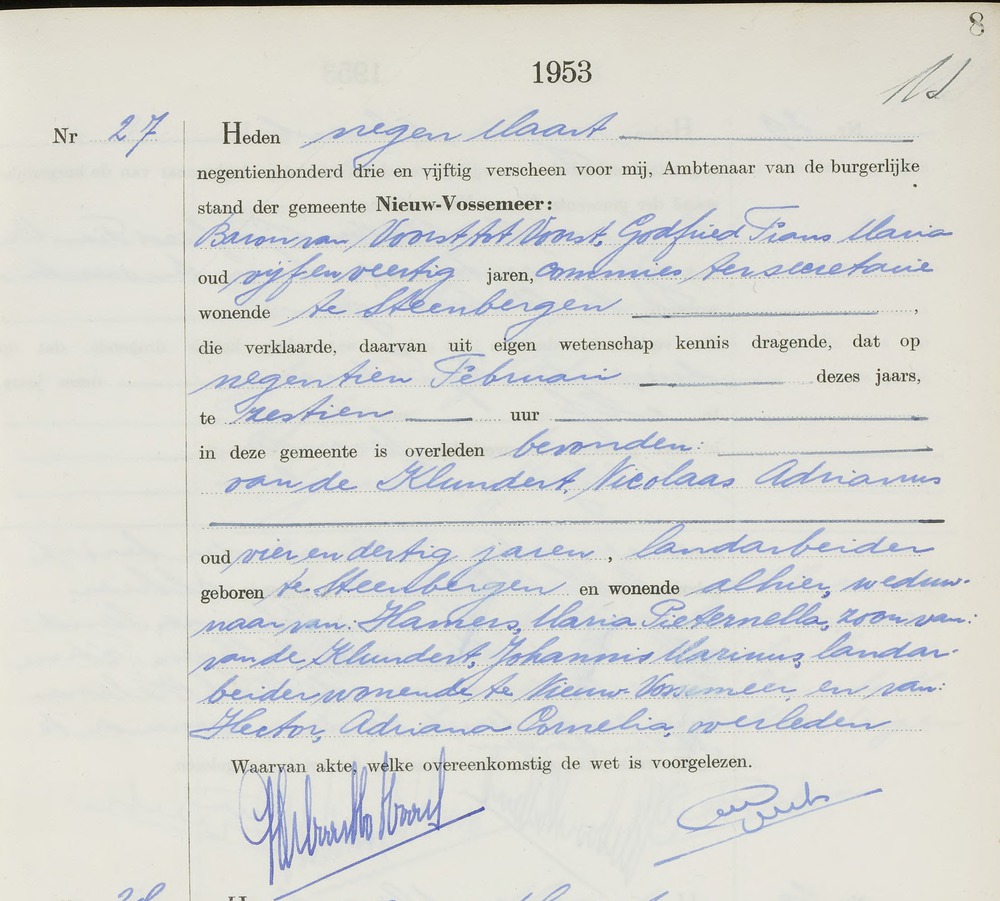 8
1953
Nr 27 Heden negen Maart
negentienhonderd drie en vijftig verscheen voor mij, Ambtenaar van de burgerlijke
stand der gemeente Nieuw-Vossemeer:
Baron van Voorst tot Voorst, Godfried Frans Maria
oud vijf en veertig jaren, commies ter secretarie
wonende te Steenbergen ,
die verklaarde, daarvan uit eigen wetenschap kennis dragende, dat op
negentien Februari dezes jaars,
te zestien uur
in deze gemeente is overleden bevonden:
van de Klundert, Nicolaas Adrianus
oud vier en dertig jaren , landarbeider
geboren te Steenbergen en wonende alhier, weduw-
naar van: Hamers, Maria Pieternella, zoon van:
van de Klundert, Johannis Marinus, landar-
beider wonende te Nieuw-Vossemeer, en van:
Hector, Adriana Cornelia, overleden
Waarvan akte, welke overeenkomstig de wet is voorgelezen.
28